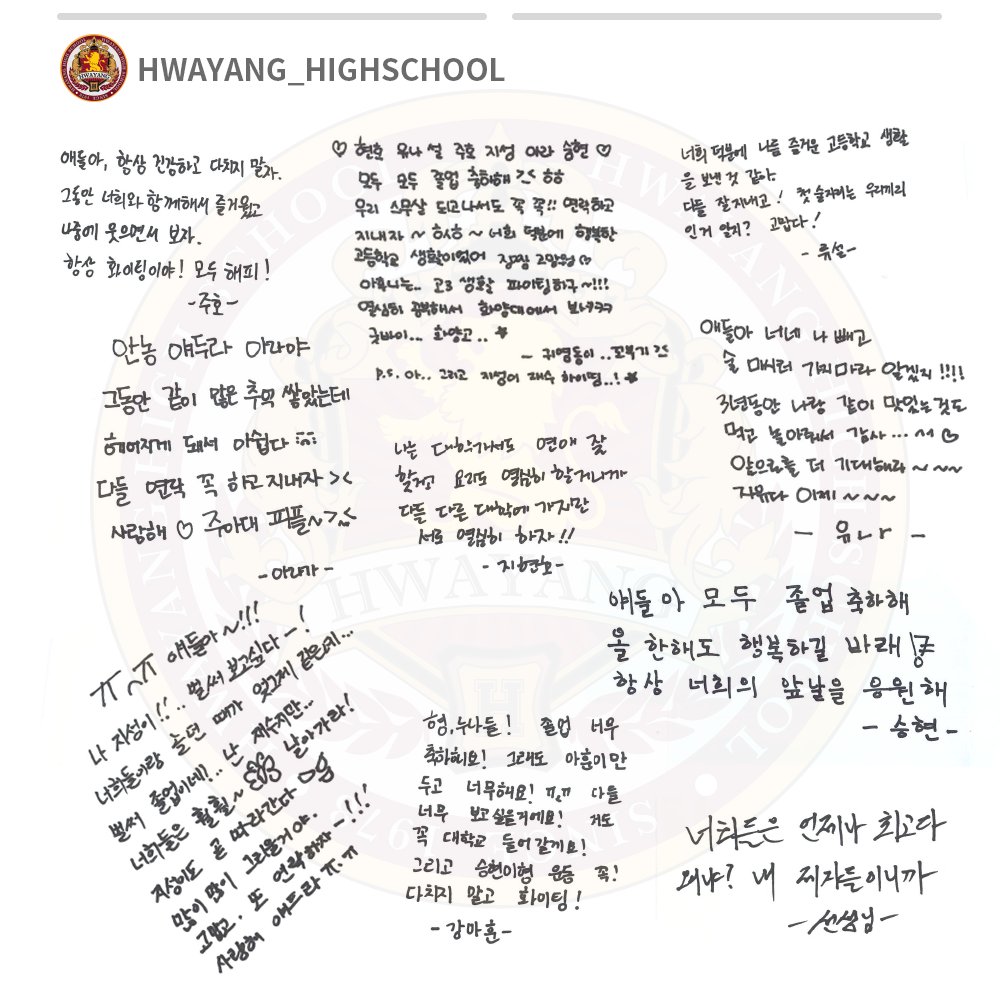 HWAYANG_HIGHSCHOOL
얘들아, 항상 건강하고 다치지 말자.
그동안 너희와 함께해서 즐거웠고
나중에 웃으면서 보자.
항상 화이팅이야! 모두 해피!
-주호-
♡ 현호 유나 설 주호 지성 아라 승현 ♡
모두 모두 졸업 축하해 ㅎㅎ
우리 스무살 되고나서도 꼭 꼭!! 연락하고
지내자 ~ ㅎㅅㅎ ~ 너희 덕분에 행복한
고등학교 생활이었어 진짜 고마웡 ♡
아훈니는.. 고3 생활 파이팅하구 ~!!!
열심히 공부해서 화양대에서 보녀ㅋㅋ
굿바이... 화양고..
- 귀염둥이.. 꼬북기
P.S. 아.. 그리고 지성이 재수 화이띵..!
너희 덕분에 나름 즐거운 고등학교 생활
을 보낸 것 같아
다들 잘지내고! 첫 술자리는 우리끼리
인거 알지? 고맙다!
- 류설 -
안농 얘두라 아라야
그동안 같이 많은 추억 쌓았는데
헤어지게 돼서 아쉽다
다들 연락 꼭 하고 지내자 ><
사랑해 ♡ 주아대 피플~><
-아라가-
나는 대학가서도 연애 잘
할거고 요리도 열심히 할거니까
다들 다른 대학에 가지만
서로 열심히 하자!!
- 지현호-
얘들아 너네 나 빼고
술 마시러 가지마라 알겠지!!!!
3년동안 나랑 같이 맛있는것도
먹고 놀아줘서 감사... ~ ♡
앞으로를 더 기대해라 ~ ~ ~
자유다 이제 ~ ~ ~
- 유나 -
얘들아 모두 졸업 축하해
올 한해도 행복하길 바래
항상 너희의 앞날을 응원해
- 승현 -
ㅠ~ㅠ 얘들아~!!!
나 지성이!!.. 벌써 보고싶다-!
너희들이랑 놀던 때가 엊그제 같은데...
벌써 졸업이네?.. 난 재수지만...
너희들은 훨훨~ 날아가라!
지성이도 곧 따라간다
많이 많이 그리울거야.
고맙고. 또 연락하자-!!!
사랑해 얘드라 ㅠ.ㅠ
형,누나들! 졸업 너무
축하해요! 그래도 아훈이만
두고 너무해요! ㅠ.ㅠ 다들
너무 보고싶을거예요! 저도
꼭 대학교 들어갈게요!
그리고 승현이형 운동 꼭!
다치지 말고 화이팅!
-강아훈-
너희들은 언제나 최고다
왜냐? 내 제자들이니까
-선생님-
HWAYANG HIGH SCHOOL
HWAYANG
H
SINCE 197